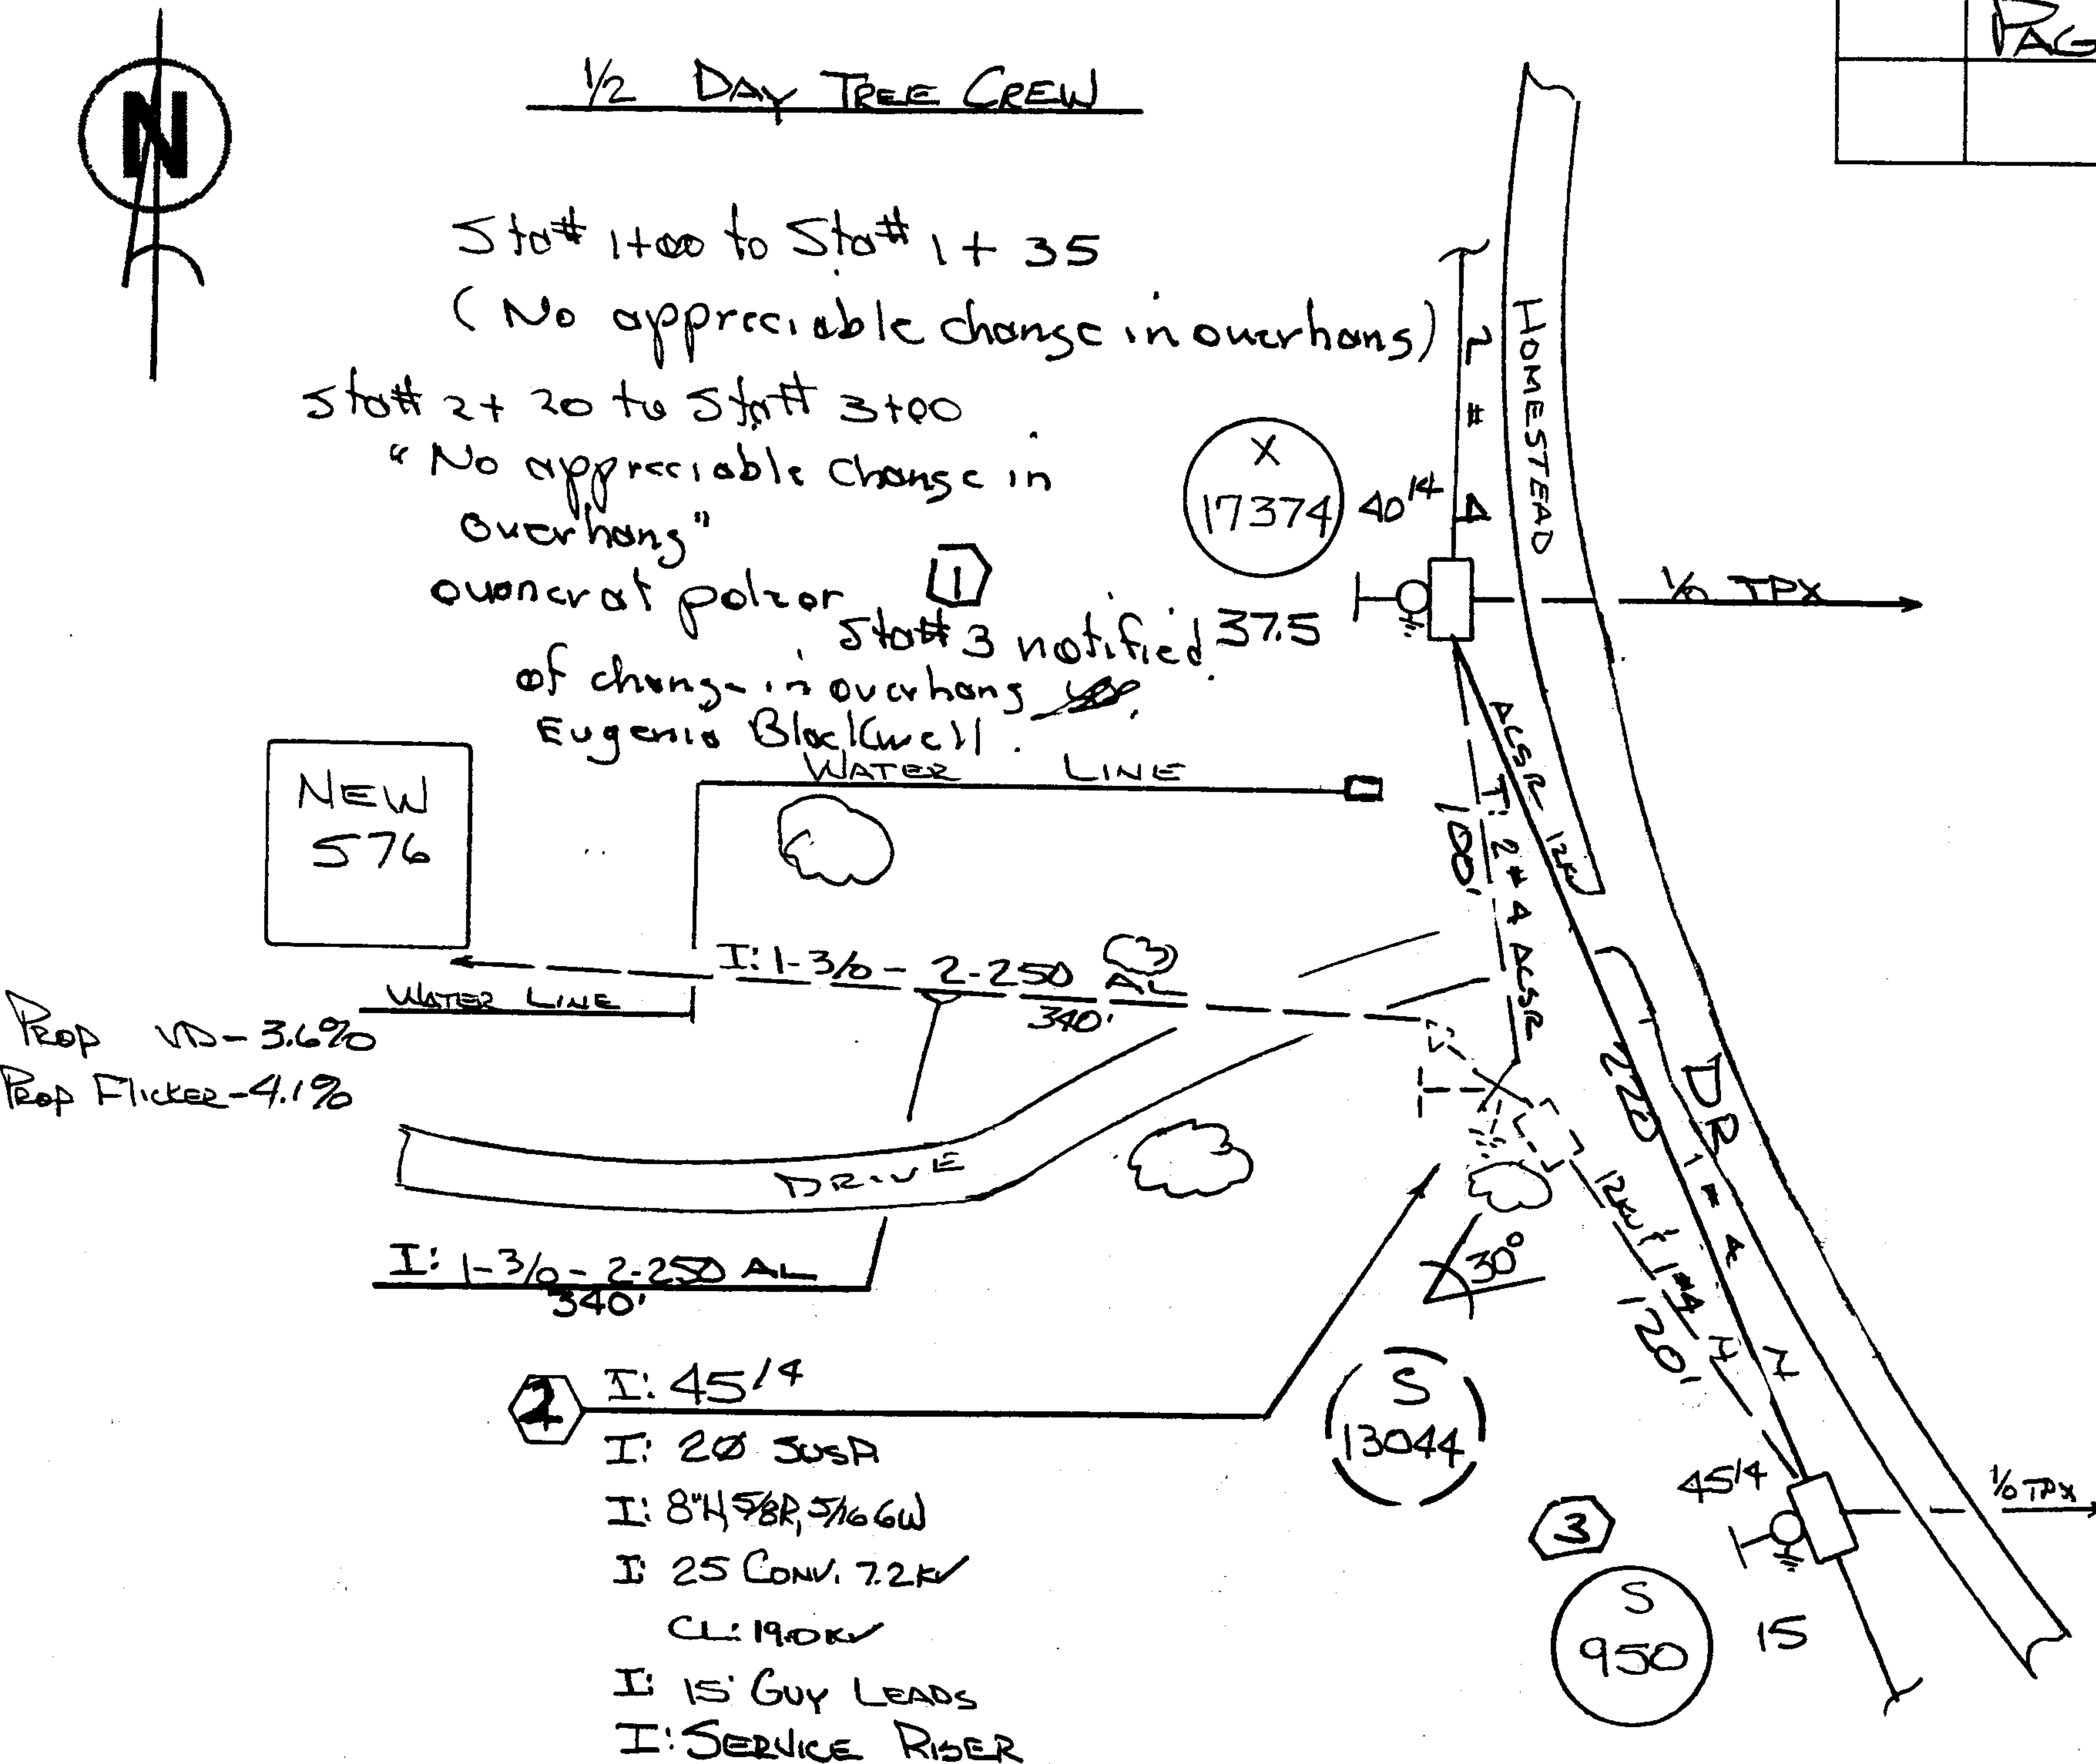 PAG
N
1/2 DAY TREE CREW
Sta# 1+00 to Sta# 1+35
(No appreciable change in overhang)
Sta# 2+20 to Sta# 3+00
"No appreciable change in
overhang"
owner at pole or
1
Sta# 3 notified
of change in overhang
Eugenia Blackwell.
X
17374
40/4
37.5
2 # 4
HOMESTEAD
1/0 TPX
ACSR 12KV
T: 2 # 4 ACSR
100'
WATER LINE
NEW
576
I: 1-3/0 - 2-250 AL
340'
WATER LINE
PROP VD-3.6%
PROP FLICKER-4.1%
220
DR
1 # 4
DRIVE
12KV
1#4
120'
I: 1-3/0-2-250 AL
340'
30°
2
I: 45/4
I: 2Ø SUSP.
I: 8"H, 5/8R, 5/16 GW
I: 25 CONV. 7.2KV
CL: 19.0KV
I: 15' GUY LEADS
I: SERVICE RISER
S
13044
45/4
1/0 TPX
3
S
950
15